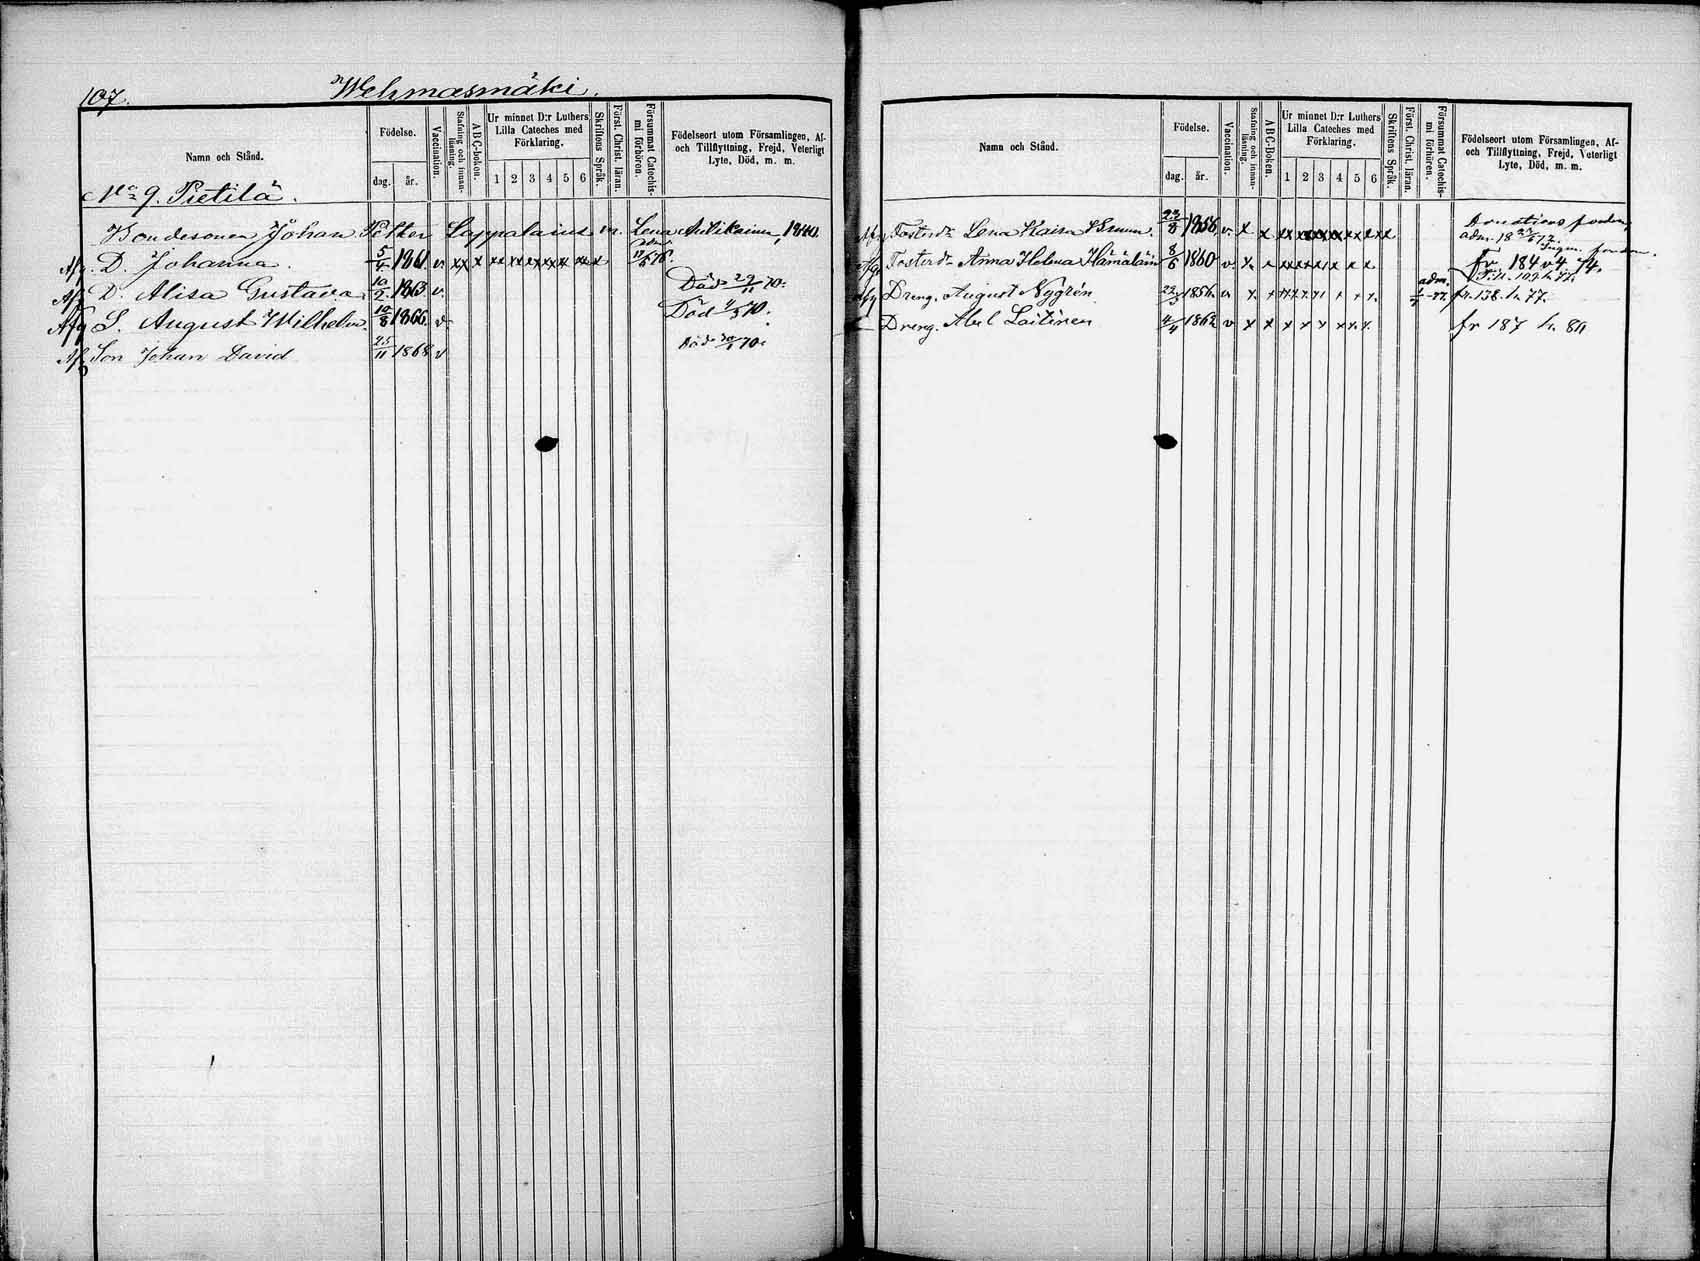 107.
Wehmasmäki.
Namn och Stånd.
Födelse.
dag. år.
Vaccination.
Stafning och innanläsning.
ABC-bokon.
Ur minnet D:r Luthers Lilla Cateches med Förklaring.
1 2 3 4 5 6
Skriftens Språk.
Först. Christ. läran.
Försummat Catechismi förhören.
Födelseort utom Församlingen, Af- och Tillflyttning, Frejd, Veterligt Lyte, Död, m. m.
No 9. Pietilä.
Bondesonen Johan Petter Lappalainen m. Lena Antikainen, 1840.
Afg. D. Johanna. 5/4 1861. v. xx x xx x x x x x x xx x
Afg D. Alisa Gustava 10/2 1863. v. Död 29/11 70.
Afg S. August Wilhelm 10/8 1866. v Död 4/3 70.
Afg Son Johan David 25/11 1868 v Död 30/1 70.
Namn och Stånd.
Födelse.
dag. år.
Vaccination.
Stafning och innanläsning.
ABC-bokon.
Ur minnet D:r Luthers Lilla Cateches med Förklaring.
1 2 3 4 5 6
Skriftens Språk.
Först. Christ. läran.
Försummat Catechismi förhören.
Födelseort utom Församlingen, Af- och Tillflyttning, Frejd, Veterligt Lyte, Död, m. m.
Afg Fosterdr Lena Kaisa 23/8 1856 v. x x
adm. 18
Afg Fosterdr Anna Helena Hämäläin 8/6 1860 v. x x fr 184 v 4 74.
Afg Dreng. August Nygrén 22/3 1856 v. x x adm. 1/7 77 fr. 138. h. 77.
Dreng. Abel Laitinen 4/4 1862 v x x x x x x x x. fr 187 h. 80